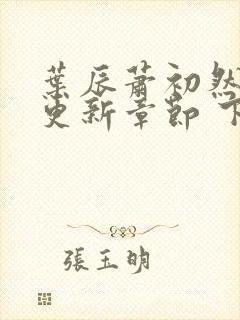 葉辰蕭初然
更新章節 下
張玉明